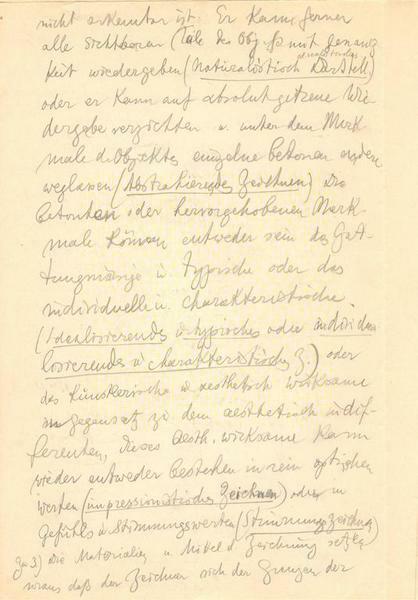 nicht erkennbar ist. Er kann ferner
alle sichtbaren Teile des Obj. mit genauig
keit wiedergeben (Naturalistisch Darstell.)
oder er kann auf absolut getreue Wie
dergabe verzichten u. unter den Merk
male d. Objektes einzelne betonen andere
weglassen (Abstrahierendes Zeichnen) die
betonten oder hervorgehobenen Merk
male können entweder sein das Gat-
tungsmäsige u. typische oder das
individuelle u. charakteristische.
(Idealisierendes u. typisches oder individua
lisierendes u. charakteristisches Z.) oder
das künstlerische u. aesthetisch wirksame
im gegensatz zu dem aesthetisch indif-
ferenten, dieses aesth. wirksame kann
wieder entweder bestehen in rein optischen
werten (impressionistisches Zeichnen) oder in
Gefühls u. Stimmungswerten (Stimmungszeichng)
Zu 3.) Die Materialien u. Mittel d. Zeichnung
voraus daß der Zeichner sich der Grenzen der